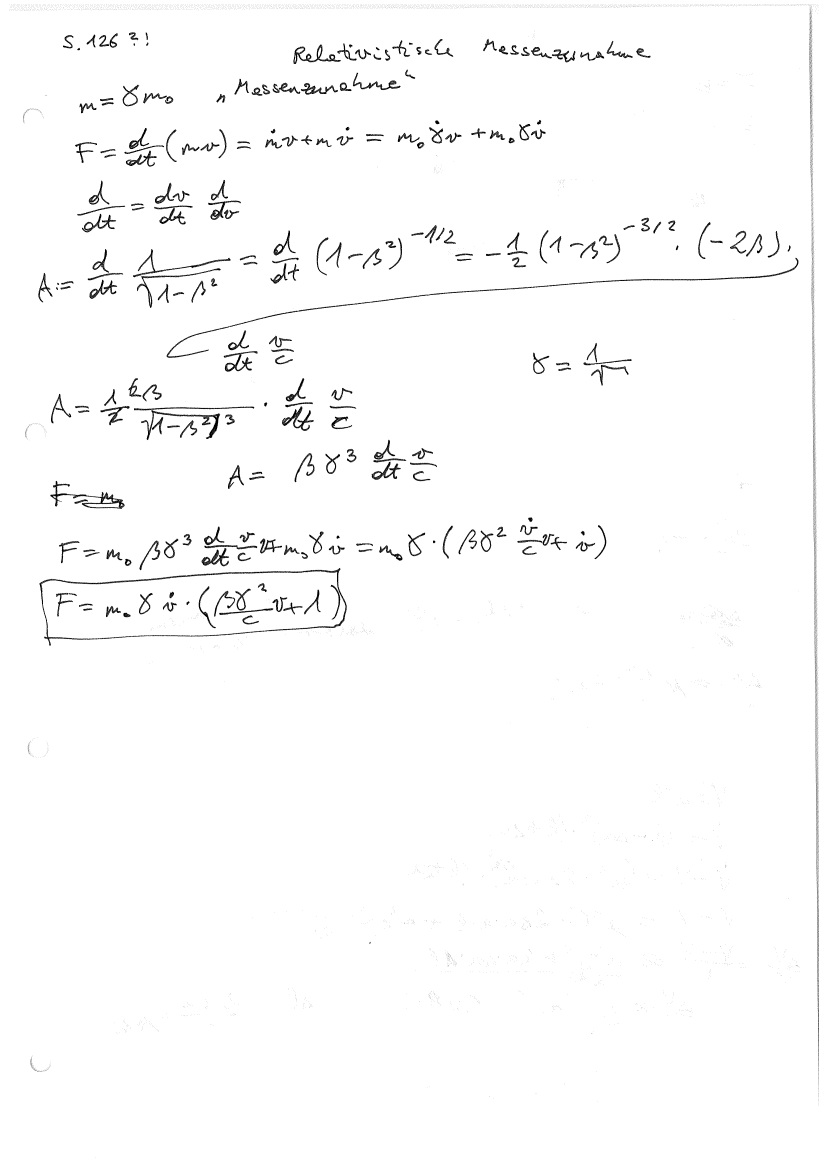 S. 126 ?!
Relativistische Massenzunahme
m = γ m₀ „Massenzunahme“
F = d/dt (mv) = ṁv + m v̇ = m₀ γ̇ v + m₀ γ v̇
d/dt = dv/dt d/dv
A := d/dt 1/√(1-β²) = d/dt (1-β²)^(-1/2) = -1/2 (1-β²)^(-3/2) · (-2β) ·
d/dt v/c
γ = 1/√
A = 1/2 2β/√(1-β²)³ · d/dt v/c
A = βγ³ d/dt v/c
F = m₀
F = m₀ βγ³ d/dt v/c v + m₀ γ v̇ = m₀ γ · (βγ² v̇/c v + v̇)
F = m₀ γ v̇ · (βγ²/c v + 1)